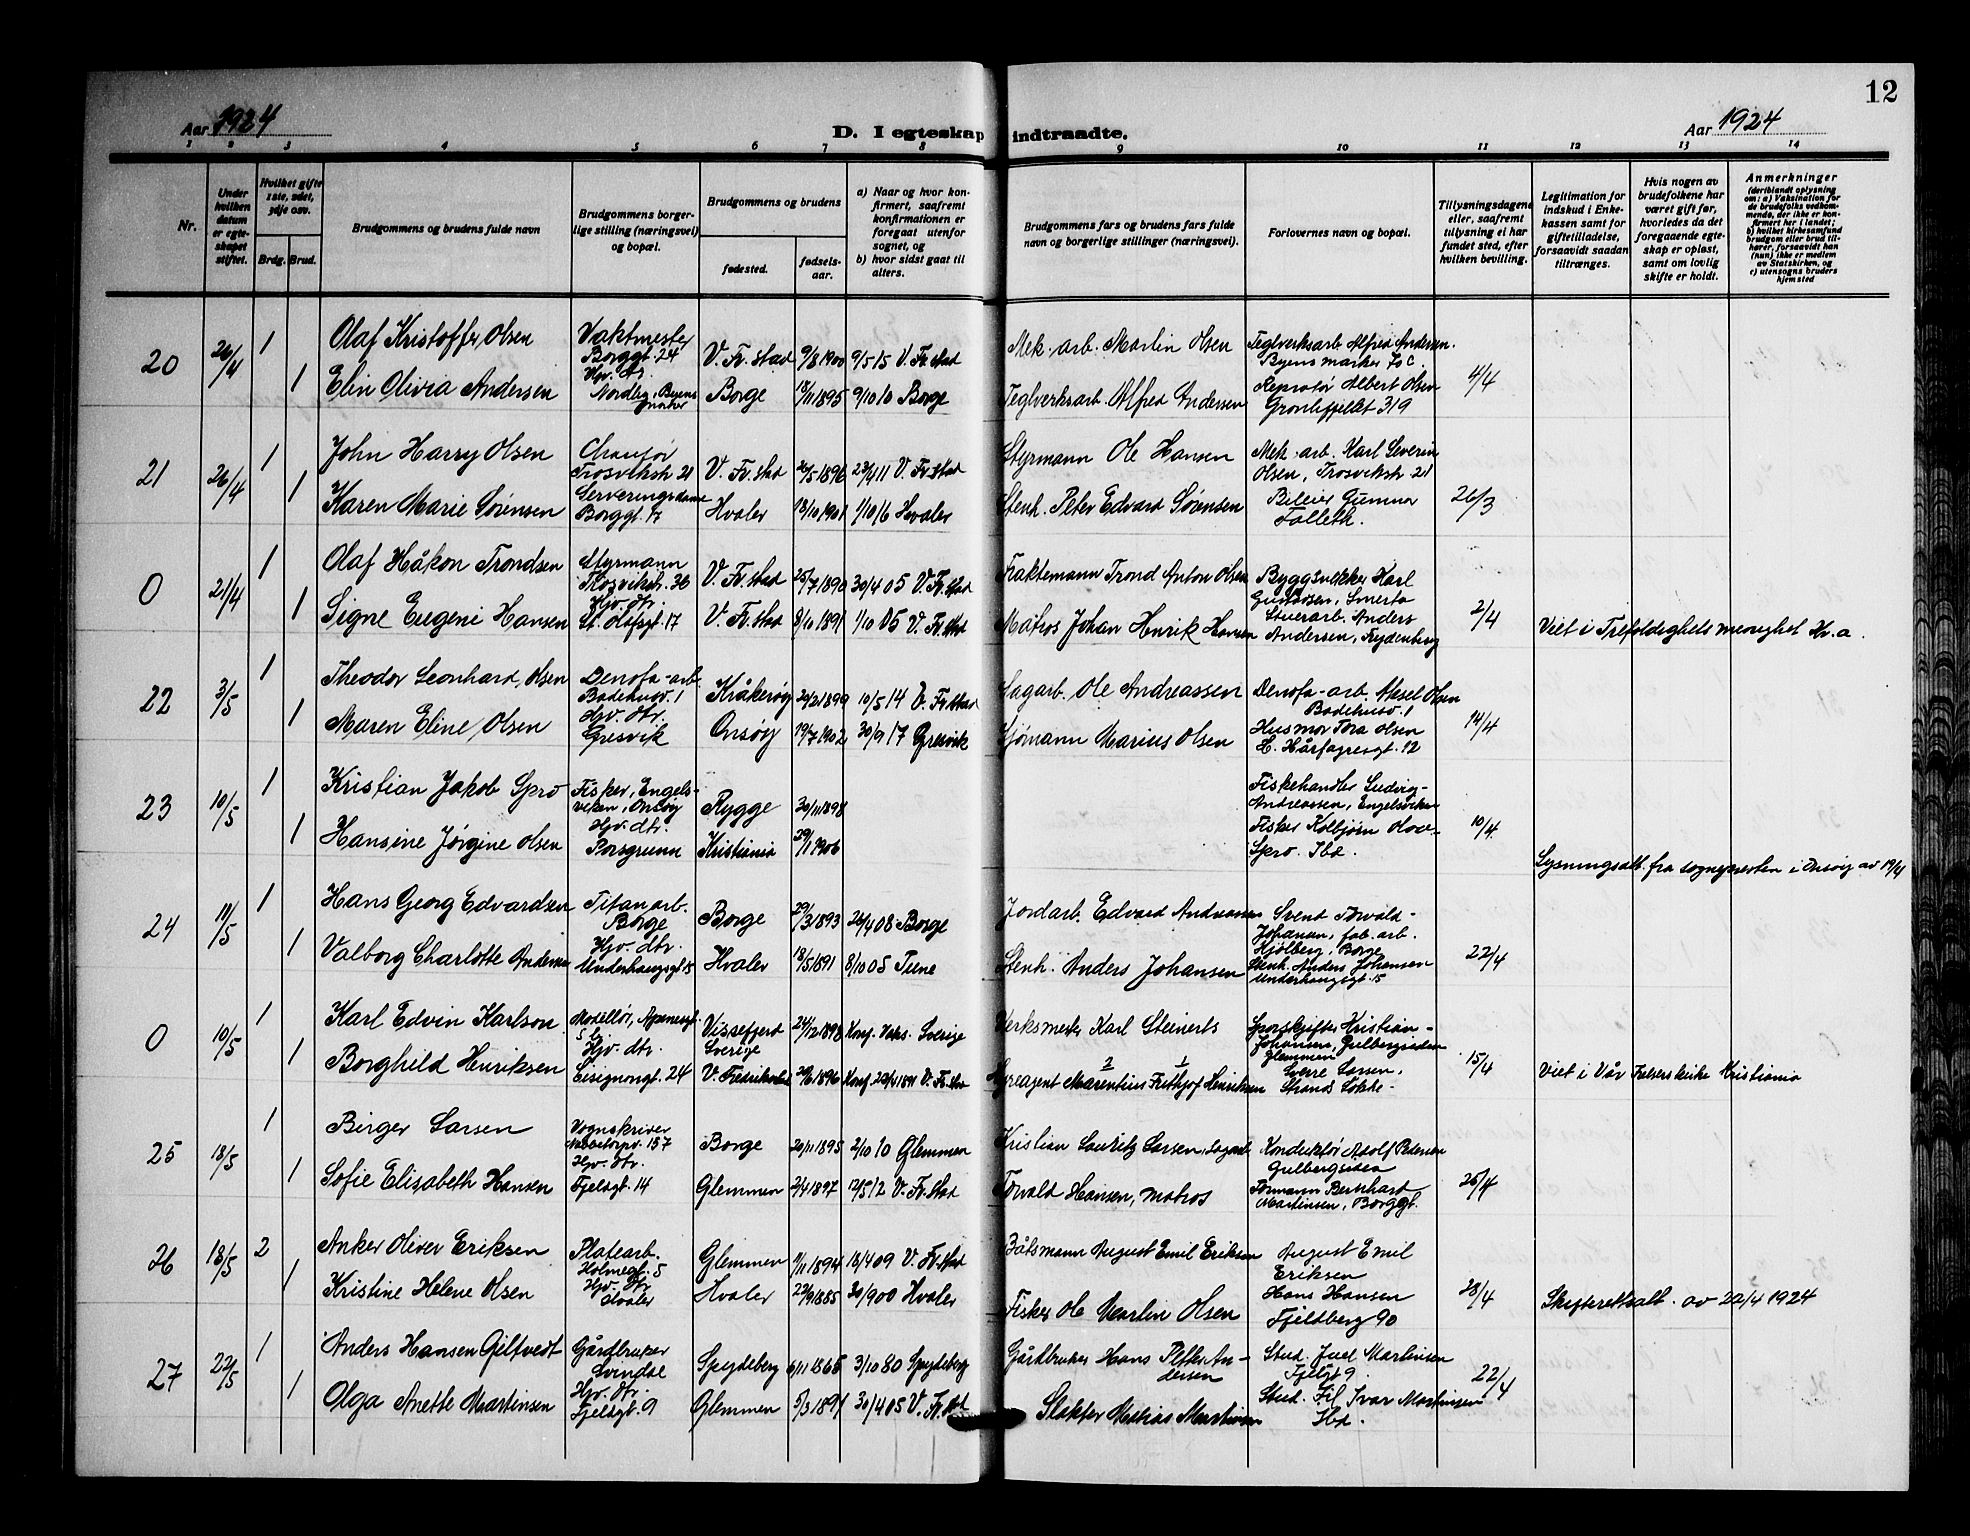 12
Aar 1924
D. I egteskap indtraadte.
Aar 1924
1 2 3 4 5 6 7 8 9 10 11 12 13 14
Nr.
Under hvilken datum er egteskapet stiftet.
Hvilket gifte 1ste, 2det, 3dje osv.
Brdg. Brud.
Brudgommens og brudens fulde navn
Brudgommens borgerlige stilling (næringsvei) og bopæl.
Brudgommens og brudens
fødested.
fødselsaar.
a) Naar og hvor konfirmert, saafremt konfirmationen er foregaat utenfor sognet, og
b) hvor sidst gaat til alters.
Brudgommens fars og brudens fars fulde navn og borgerlige stillinger (næringsvei).
Forlovernes navn og bopæl.
Tillysningsdagene eller, saafremt tillysning ei har fundet sted, efter hvilken bevilling.
Legitimation for indskud i Enkekassen samt for giftetilladelse, forsaavidt saadan tiltrænges.
Hvis nogen av brudefolkene har været gift før, hvorledes da det foregaaende egteskap er opløst, samt om lovlig skifte er holdt.
Anmerkninger
(deriblandt oplysning om: a) Vaksination for de brudefolks vedkommende, der ikke er konfirmert her i landet; b) hvilket kirkesamfund brudgom eller brud tilhører, forsaavidt han (hun) ikke er medlem av Statskirken, og c) utensogns bruders hjemsted
20 26/4 1 Olaf Kristoffer Olsen Vaktmester Borggt. 24 V. Fr.stad 9/8 1900 9/5 15 V. Fr.stad Mek. arb. Martin Olsen Teglverksarb Alfred Andersen. Byens marker 75c.
1 Elin Olivia Andersen Hjv. dtr. Nordlig, Byens marker Borge 18/11 1895 9/10 10 Borge Teglverksarb Alfred Andersen Reprotør Albert Olsen Gronlifjellet 319 4/4
21 26/4 1 John Harry Olsen Chauför Trosvikstr 21 V. Fr.stad 26/5 1896 23/4 11 V. Fr.stad Styrmann Ole Hansen Mek. arb. Karl Severin Olsen, Trosvikstr. 21
1 Karen Marie Sørensen Serveringsdame Borggt. 17 Hvaler 18/10 1901 1/10 16 Hvaler Stenh. Peter Edvard Sørensen Bileier Gunnar Falleth. 26/3
0 21/4 1 Olaf Håkon Trondsen Styrmann Trosvikstr. 36 V. Fr.stad 25/7 1890 30/4 05 V. Fr.stad Fraktemann Trond Anton Olsen Karl Gundersen, Smerta
1 Signe Eugeni Hansen Hjv. dtr. St. Olafsgt. 17 V. Fr.stad 8/10 1891 1/10 05 V. Fr.stad Matros Johan Henrik Hansen Stuerarb. Anders Andersen, Frydenberg 2/4 Viet i Trefoldighets menighet Kr.a.
22 3/5 1 Theodor Leonhard Olsen Denofa-arb. Badehusv. 1 Kråkerøy 20/2 1899 10/5 14 V. Fr.stad Sagarb. Ole Andreassen Denofa-arb. Aksel Olsen Badehusv. 1
1 Maren Eline Olsen Hjv. dtr. Gresvik Onsøy 19/7 1902 30/9 17 Gresvik Sjømann Marius Olsen Husmor Tora Olsen H. Hårfagresgt. 12 14/4
23 10/5 1 Kristian Jakob Spro Fisker, Engelsviken, Onsøy Rygge 30/11 1898 Fiskehandler Ludvig Andreassen, Engelsviken
1 Hansine Jørgine Olsen Hjv. dtr. Porsgrunn Kristiania 29/1 1906 Fisker Kolbjørn Spro. Ibd. 10/4. Lysningsatt. fra sognepresten i Onsøy av 19/4
24 11/5 1 Hans Georg Edvardsen Titanarb. Borge Borge 29/3 1893 26/4 08 Borge Jordarb. Edvard Andreassen Svend Torvald Johansen, fab. arb. Hjølberg, Borge
1 Valborg Charlotte Andersen Hjv. dtr. Underhaugsgt. 15 Hvaler 18/5 1891 8/10 05 Tune Stenh. Anders Johansen Stenh. Anders Johansen Underhaugsgt. 15 22/4
0 10/5 1 Karl Edvin Karlson Modellør, 5b Vissefjerd Sverige 24/12 1898 Konf. Sverige Verksmester Karl Steinerts Sporskifter Kristian Johansen, Gulbergsiden Glemmen
1 Borghild Henriksen Hjv. dtr. Leiegnongt. 24 V. Fredrikstad 20/6 1896 Konf. 23/4 1911 V. Fr.stad Hyreagent Marentius 2 Frithjof 1 Henriksen Sverre Larsen, Strands Løkke 15/4 Viet i Vår Frelsers kirke Kristiania
25 18/5 1 Birger Larsen Vognskriver Nabbetorpv. 157 Borge 20/11 1895 2/10 10 Glemmen Kristian Lauritz Larsen, Sagarb Konduktør Adolf Pedersen Gulbergsiden
1 Sofie Elisabeth Hansen Hjv. dtr. Fjeldgt. 14 Glemmen 2/4 1897 12/5 12 V. Fr.stad Torvald Hansen, matros Formann Bernhard Martinsen, Borggt. 25/4
26 18/5 2 Anker Oliver Eriksen Platearb. Holmegt. 5 Glemmen 1/11 1894 18/4 09 V. Fr.stad Båtsmann August Emil Eriksen August Emil Eriksen
1 Kristine Helene Olsen Hjv. dtr. Hvaler Hvaler 23/9 1885 30/9 00 Hvaler Fisker Ole Martin Olsen Hans Hansen Fjeldberg 90 28/4 Skifterettsatt. av 22/4 1924
27 22/5 1 Anders Hansen Giltvedt Gårdbruker Svindal Spydeberg 6/11 1865 3/10 80 Spydeberg Gårdbruker Hans Petter Andersen Stud. Juel Martinsen Fjeldgt 9.
1 Olga Anette Martinsen Hjv. dtr. Fjeldgt. 9 Glemmen 5/3 1891 30/4 05 V. Fr.st Slakter Mathias Martinsen Stud. Fil Ivar Martinsen Ibd. 22/4